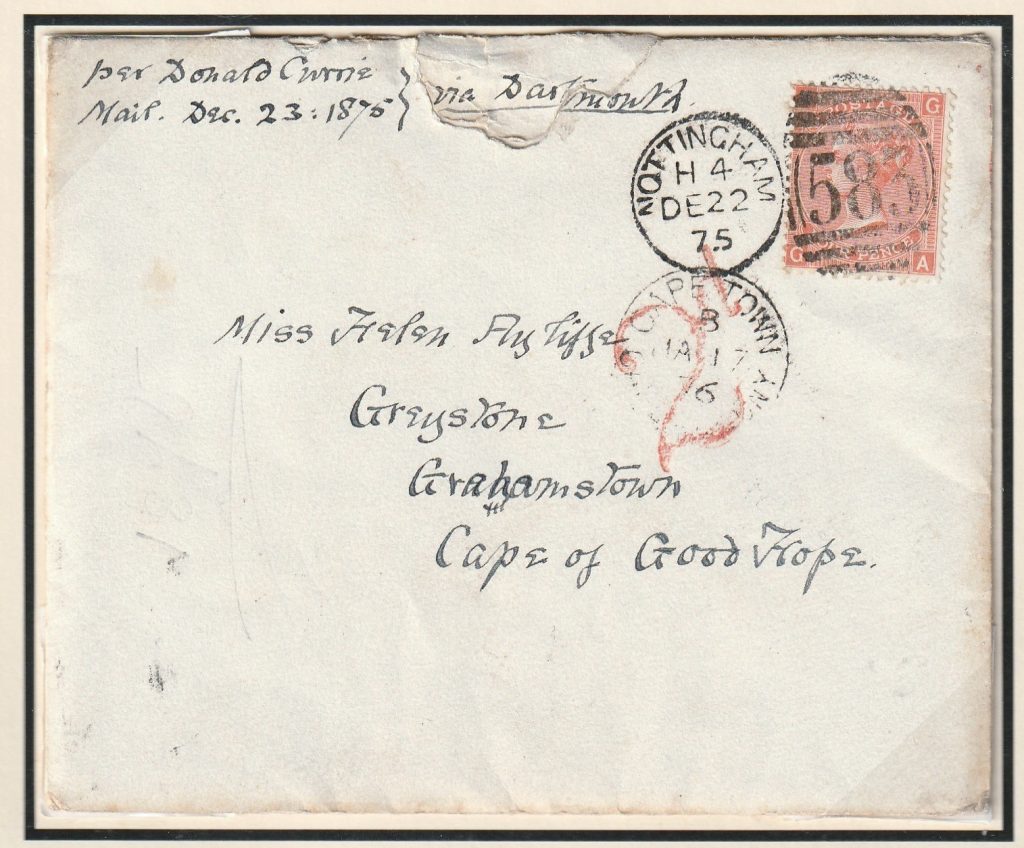 per Donald Currie
Mail. Dec. 23: 1875 } via Dartmouth.
NOTTINGHAM
H 4
DE22
75
583
G
G
A
CAPE TOWN
B
JA 17
76
Miss Helen
Greystone
Grahamstown
Cape of Good Hope.